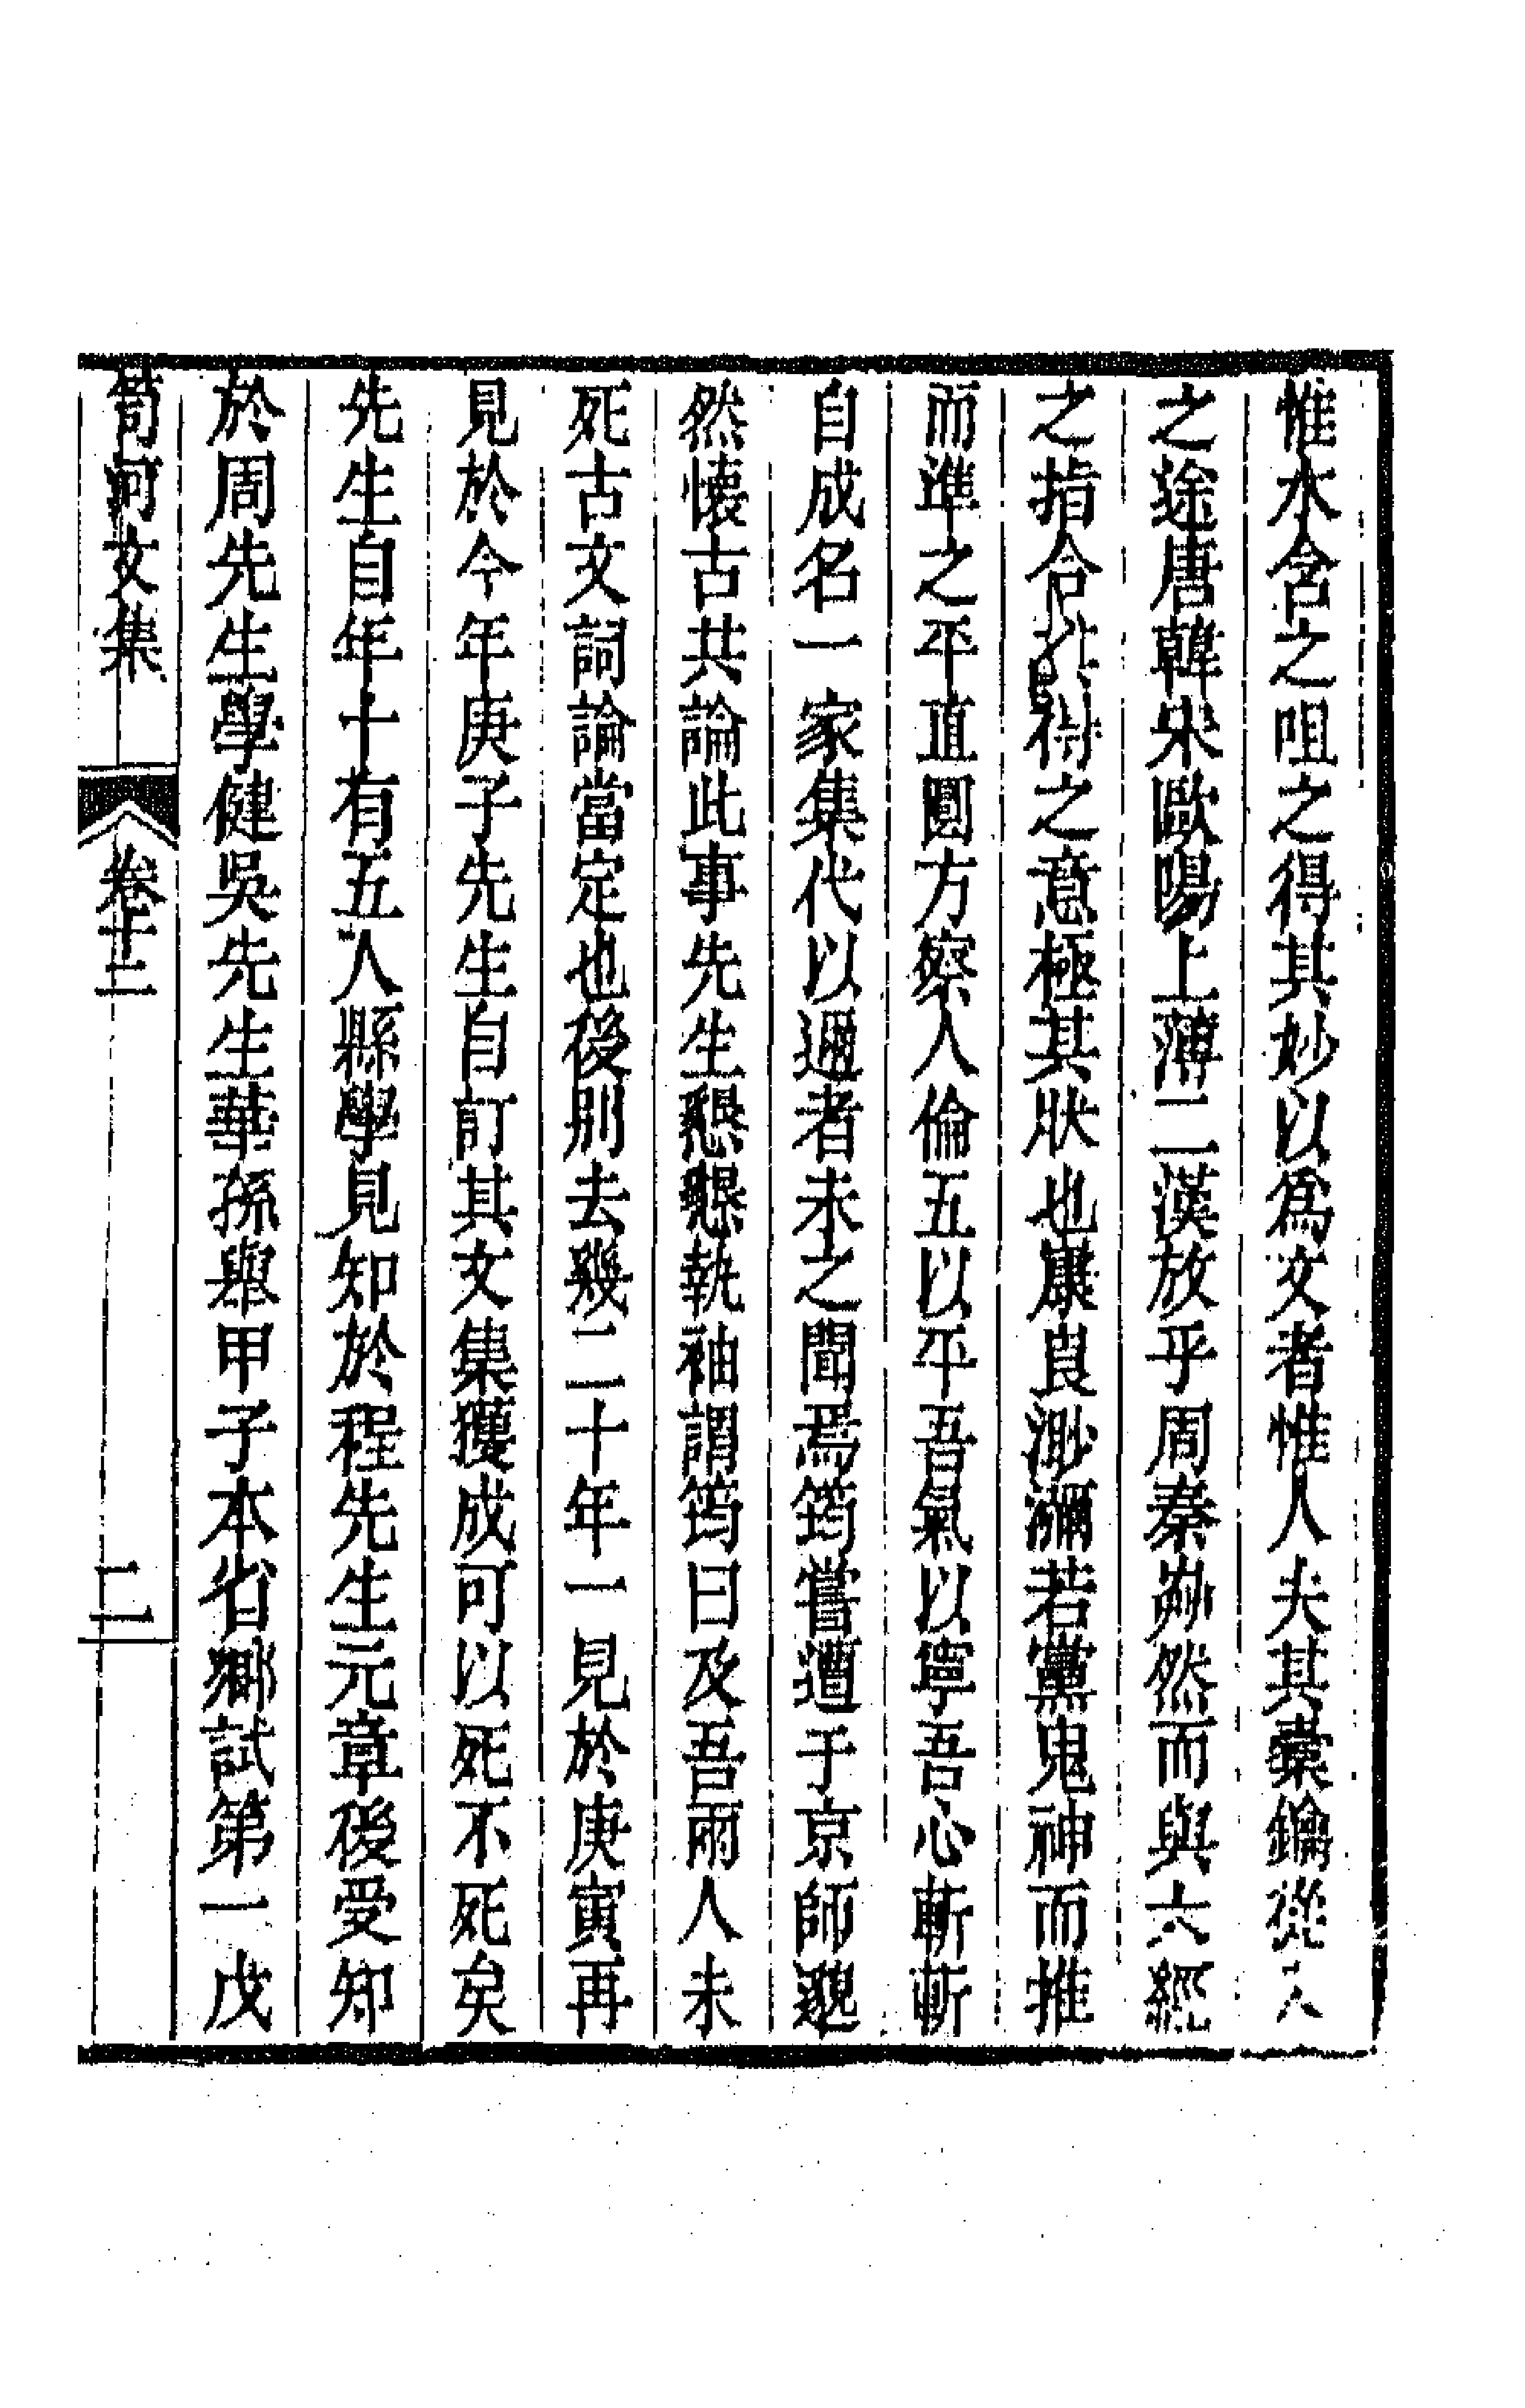 惟水含之咀之得其妙以爲文者惟人夫其橐鑰從入
之途唐韓宋歐陽上薄二漢放乎周秦然而與六經
之指合得之意極其狀也康良渺瀰若黨鬼神而推
而準之平直圓方察人倫五以平吾氣以寧吾心斬斬
自成名一家集代以邇者未之聞焉筠嘗遭于京師邈
然懷古共論此事先生懇懇執袖謂筠曰及吾兩人未
死古文詞論當定也後別去幾二十年一見於庚寅再
見於今年庚子先生自訂其文集獲成可以死不死矣
先生自年十有五入縣學見知於程先生元章後受知
於周先生學健吳先生華孫舉甲子本省鄉試第一戊
笥河文集 卷十二 二